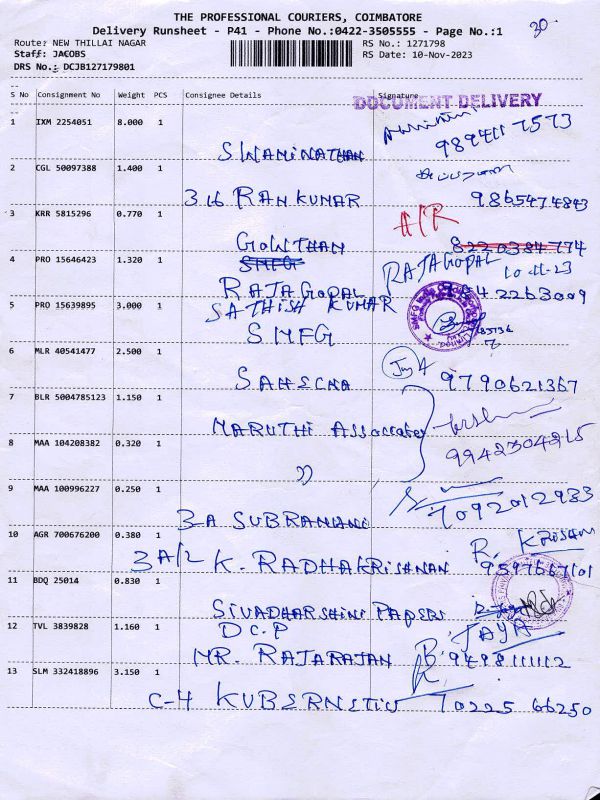 THE PROFESSIONAL COURIERS, COIMBATORE
30
Delivery Runsheet - P41 - Phone No.:0422-3505555 - Page No.:1
Route: NEW THILLAI NAGAR
RS No.: 1271798
Staff: JACOBS
RS Date: 10-Nov-2023
DRS No.: DCJB127179801
S No Consignment No Weight PCS Consignee Details Signature
DOCUMENT DELIVERY
1 IXM 2254051 8.000 1
SWAMINATHAN 9894117573
2 CGL 50097388 1.400 1
316 RAM KUMAR 9865474843
3 KRR 5815296 0.770 1
A/R
GOWTHAN 8220384774
4 PRO 15646423 1.320 1
SMFG
RAJAGOPAL 10-11-23
RAJAGOPAL 42263009
5 PRO 15639895 3.000 1
SATHISH KUMAR
SMFG
6 MLR 40541477 2.500 1
9790621367
7 BLR 5004785123 1.150 1
MARUTHI Associates
9942304215
8 MAA 104208382 0.320 1
"
9 MAA 100996227 0.250 1
3-A SUBRAMANI 7092012933
10 AGR 700676200 0.380 1
R. KRISHAN
3A/2 K. RADHAKRISHNAN 9597667101
11 BDQ 25014 0.830 1
SIVADHARSHINI PAPERS
12 TVL 3839828 1.160 1
D C P JAYA
MR. RAJARAJAN 9498111112
13 SLM 332418896 3.150 1
C-4 KUBERNETIS 70225 66250